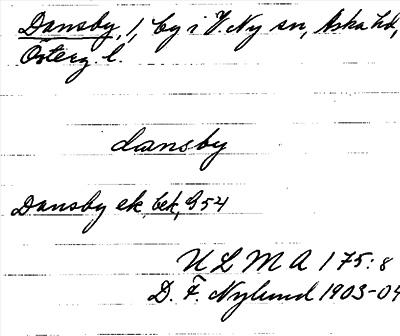 Dansby, 1, by i V. Ny sn, Aska hd,
Österg. l.
dansby
Dansby ek. bek, 954
ULMA 175:8
D. F. Nylund 1903-04